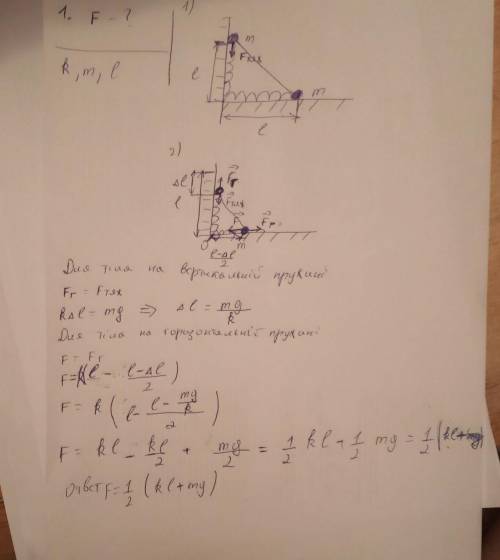 1. F - ?
k, m, l
1)
m
Fтяж
l
m
l
2)
Δl
Fг
l
Fтяж
F
Fг
O
l-Δl/2
m
Для тіла на вертикальній пружині
Fг = Fтяж
kΔl = mg ⇒ Δl = mg/k
Для тіла на горизонтальній пружині
F = Fг
F = k(l - l-Δl/2)
F = k(l - l - mg/k / 2)
F = kl - kl/2 + mg/2 = 1/2 kl + 1/2 mg = 1/2 (kl+mg)
Ответ F = 1/2 (kl + mg)